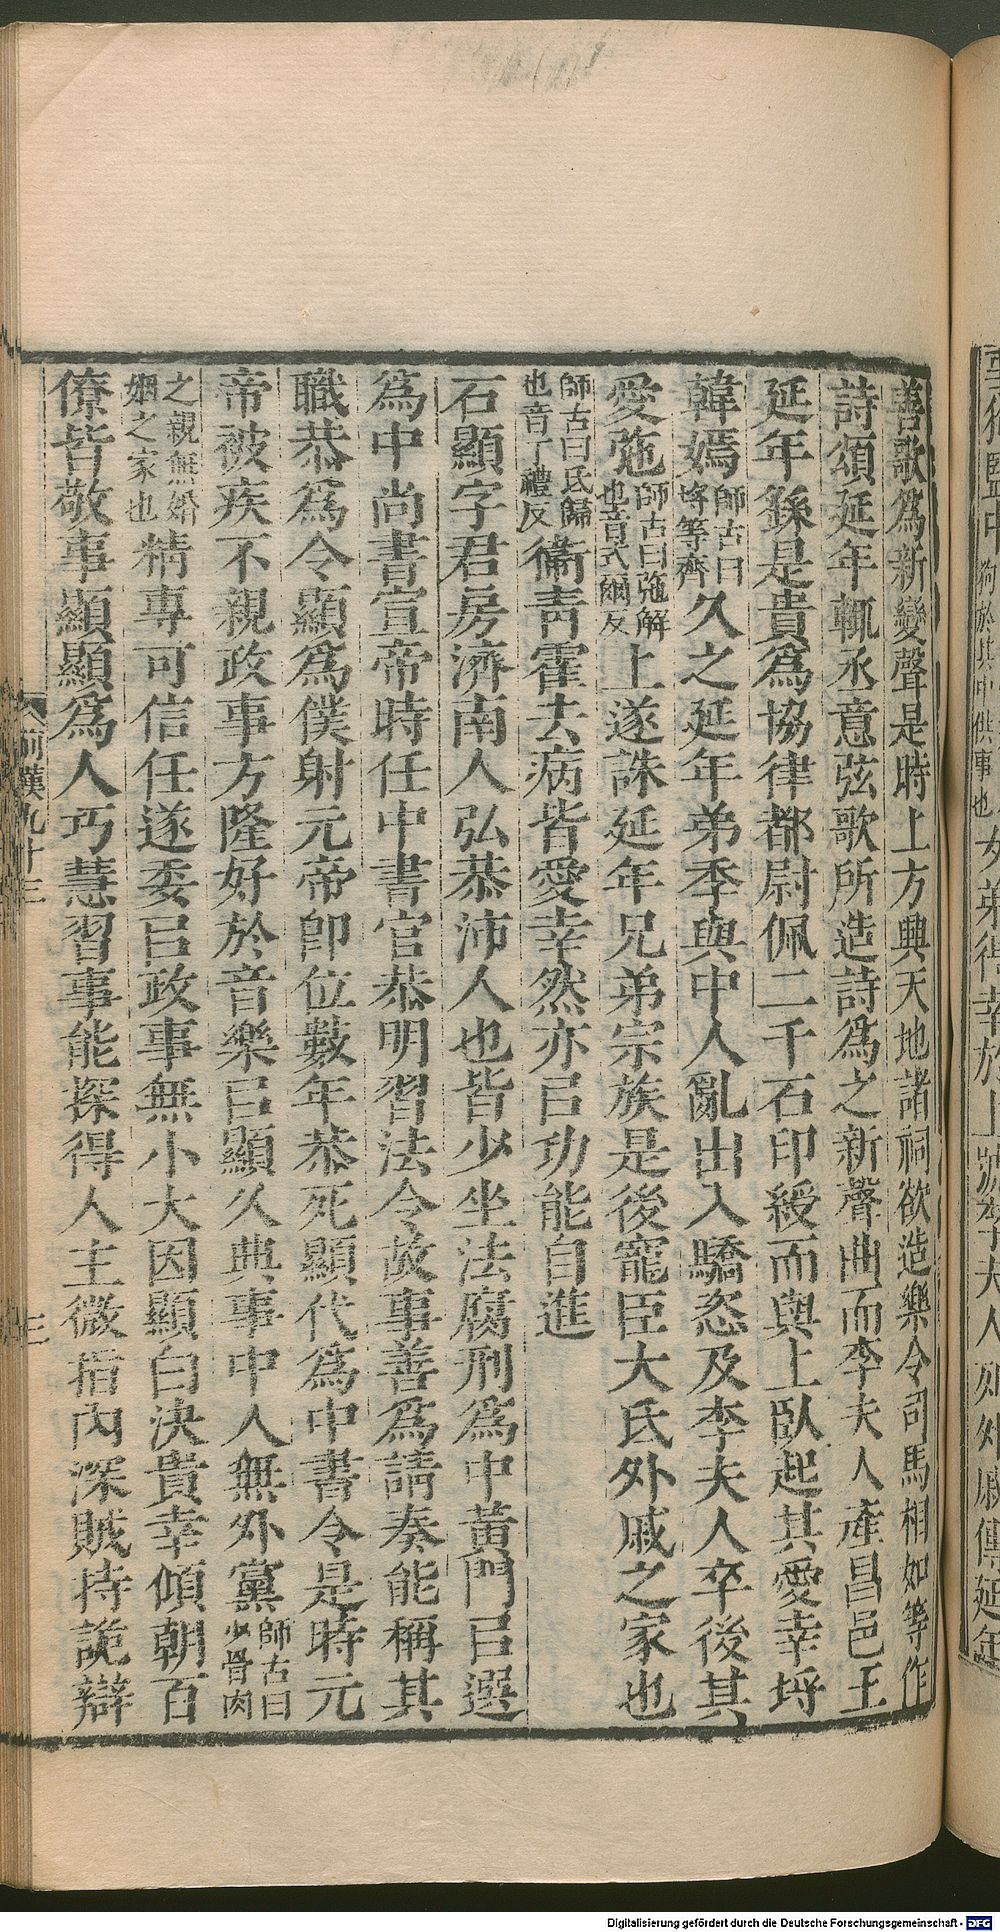 善歌爲新變聲是時上方興天地諸祠欲造樂令司馬相如等作
詩頌延年輒丞意弦歌所造詩爲之新聲曲而李夫人產昌邑王
延年繇是貴爲協律都尉佩二千石印綬而與上臥起其愛幸埒
韓嫣師古曰埒等齊久之延年弟季與中人亂出入驕恣及李夫人卒後其
愛㢮師古曰㢮解也音式爾反上遂誅延年兄弟宗族是後寵臣大氐外戚之家也
師古曰氐歸也音丁禮反衞靑霍去病皆愛幸然亦㠯功能自進
石顯字君房濟南人弘恭沛人也皆少坐法腐刑爲中黃門㠯選
爲中尚書宣帝時任中書官恭明習法令故事善爲請奏能稱其
職恭爲令顯爲僕射元帝卽位數年恭死顯代爲中書令是時元
帝被疾不親政事方隆好於音樂㠯顯久典事中人無外黨師古曰少骨肉
之親無婚姻之家也精專可信任遂委㠯政事無小大因顯白決貴幸傾朝百
僚皆敬事顯顯爲人巧慧習事能探得人主微指內深賊持詭辯
前漢九十三
三
狗於其中供事也女弟得幸於上號李夫人列外戚傳延年
Digitalisierung gefördert durch die Deutsche Forschungsgemeinschaft - DFG